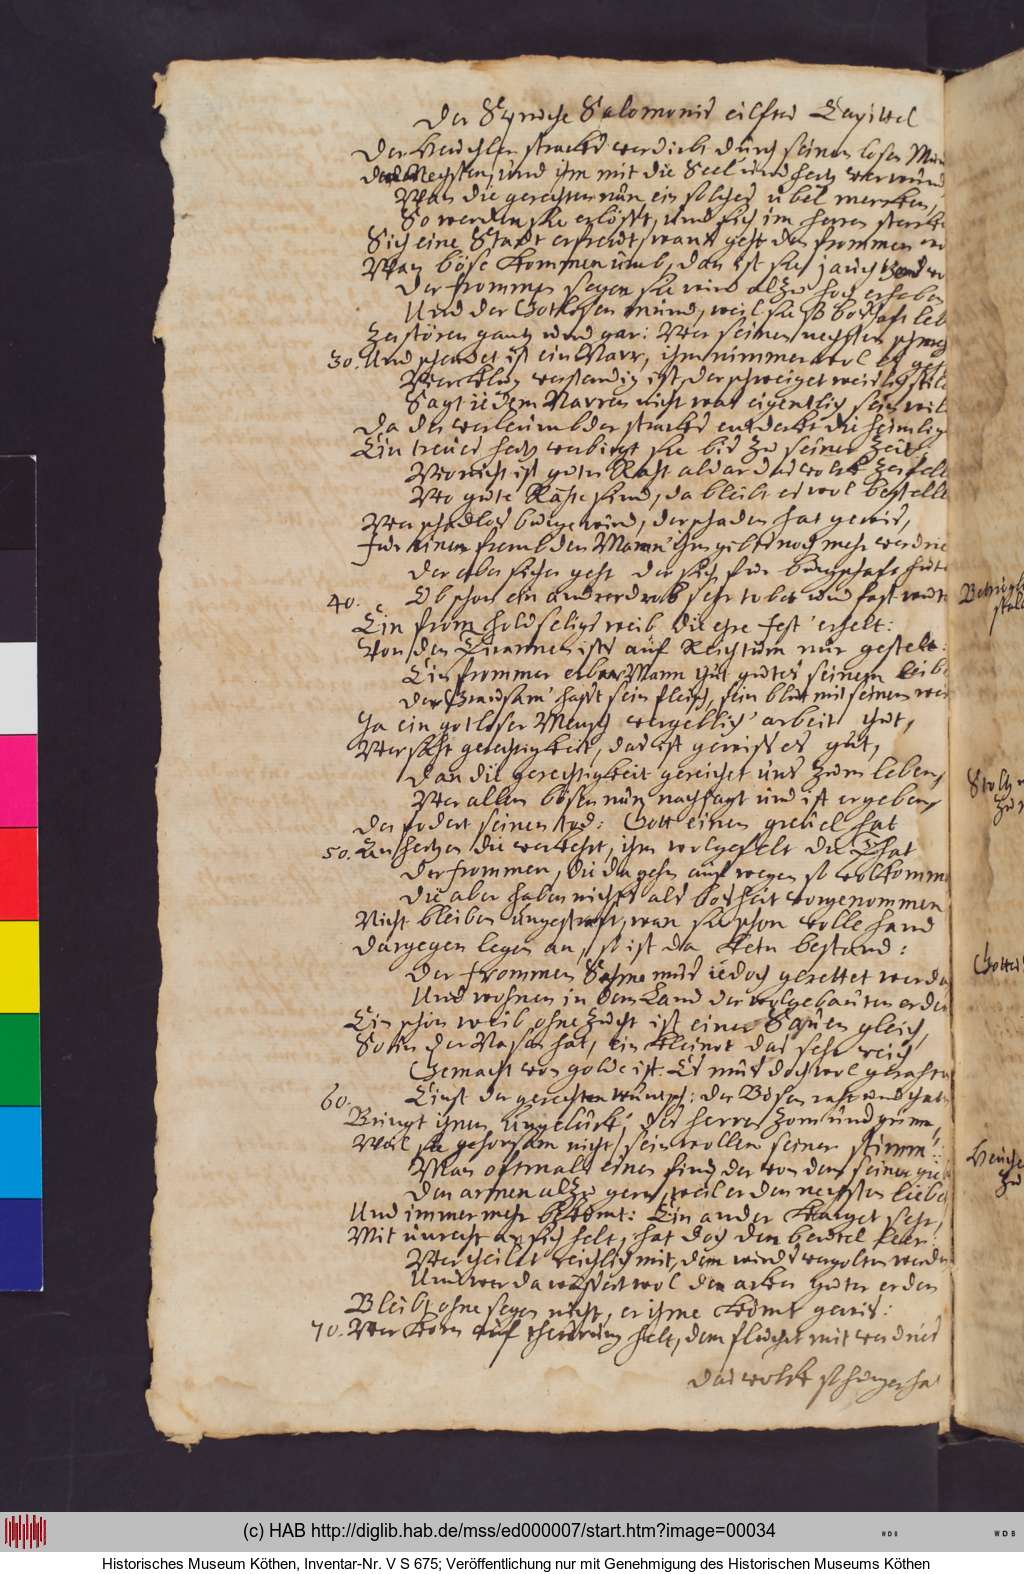 Der Spruche Salomonis eilftes Capittel
Der Heuchler stracks verdirbt durch seinen losen Mun
des Nechsten, und ihm mit die Seel und hertz verwund
Wan die gerechten nun ein solches ubel mercken,
So werden sie erlösst, und sich im herren stercke
Sich eine Stadt erfreut, wans geht den frommen wo
Wan böse kommen umb, dan ist sie jauchtzend
Der frommen segen sie wird alzu hoch erheben
Und der Gotlosen mund, weil sie so boshaft leb
Zerstören gantz und gar: Wer seinen nechsten schm
30. Und schendet ist ein Narr, ihm nimmer wol es
Wer klug verstendig ist, der schweiget weislig stil
Sagt iedem Narren nicht was eigentlich sein wil
Da der verleumbder stracks entdeckt die heimlig
Ein treues hertz verbirgt sie bis zu seiner zeit:
Wo nicht ist guter Raht aldar das volck zerfelt
Wo gute Rähte sind, da bleibt es wol bestellt
Wer schadlos burge wird, der schaden hat gewis,
Fur einen frembden Mann ihm gibts noch mehr verdrie
Der aber sicher geht der sich fur burgschaft hüt
40. Ob schon ein ander drob sehr tobet und fast wüt
Ein from holdseligs weib die ehre fest erhelt:
Von den Tirannen ists auf Reichtum nur gestelt:
Ein frommer erbar Mann thut gutes seinem leibe
der Grausam hasst sein fleisch, sein blut mit seinem wei
Ja ein gotloser Mensch vergeblich arbeit thut,
Wer säht gerechtigkeit, das ist gewiss es gut,
Dan die gerechtigkeit gereichet uns zum leben,
Wer allem bösen nun nachjagt und ist ergeben,
der fodert seinen tod: Gott einen greuel hat
50. An hertzen die verkehrt, ihm wolgefelt die That
Der frommen, die da gehn auf wegen so volkomm
Die aber haben nichts als bosheit vorgenommen
Nicht bleiben ungestraft, wan sie schon volle hand
dargegen legen an, so ist da kein bestand:
Der frommen Sahme mus iedoch gerettet werden
Und wohnen in dem Land der wolgebauten erden
Ein schön weib ohne zucht ist einer Sauen gleich,
So in der Nasen hat, ein kleinot das sehr reich
Gemacht von golde ist. Es mus doch wol gerahten
60. Einst der gerechten wuntsch: der Bösen raht und thaten
Bringt ihnen ungelück, des herren zorn und grimm,
Weil sie gehorsam nicht sein wollen seiner stimm:
Man oftmals einen find der von dem seinen gi
Den armen alzu gern, weil er den nechsten liebet
Und immer mehr bekomt: Ein ander karget sehr,
Mit unrecht an sich helt, hat doch den beutel leer:
Wer theilet reichlich mit, dem wirds vergolten werden
Und wer da wessert wol den acker guter erden
Bleibt ohne segen nicht, er ihme kömt gewis:
70. Wer Korn auf theurung helt, dem fluchet mit verdries
Das volck so hunger ha
Betrigl
Stoltz
zu
Gottes
Heuche
zu
(c) HAB http://diglib.hab.de/mss/ed000007/start.htm?image=00034
Historisches Museum Köthen, Inventar-Nr. V S 675; Veröffentlichung nur mit Genehmigung des Historischen Museums Köthen